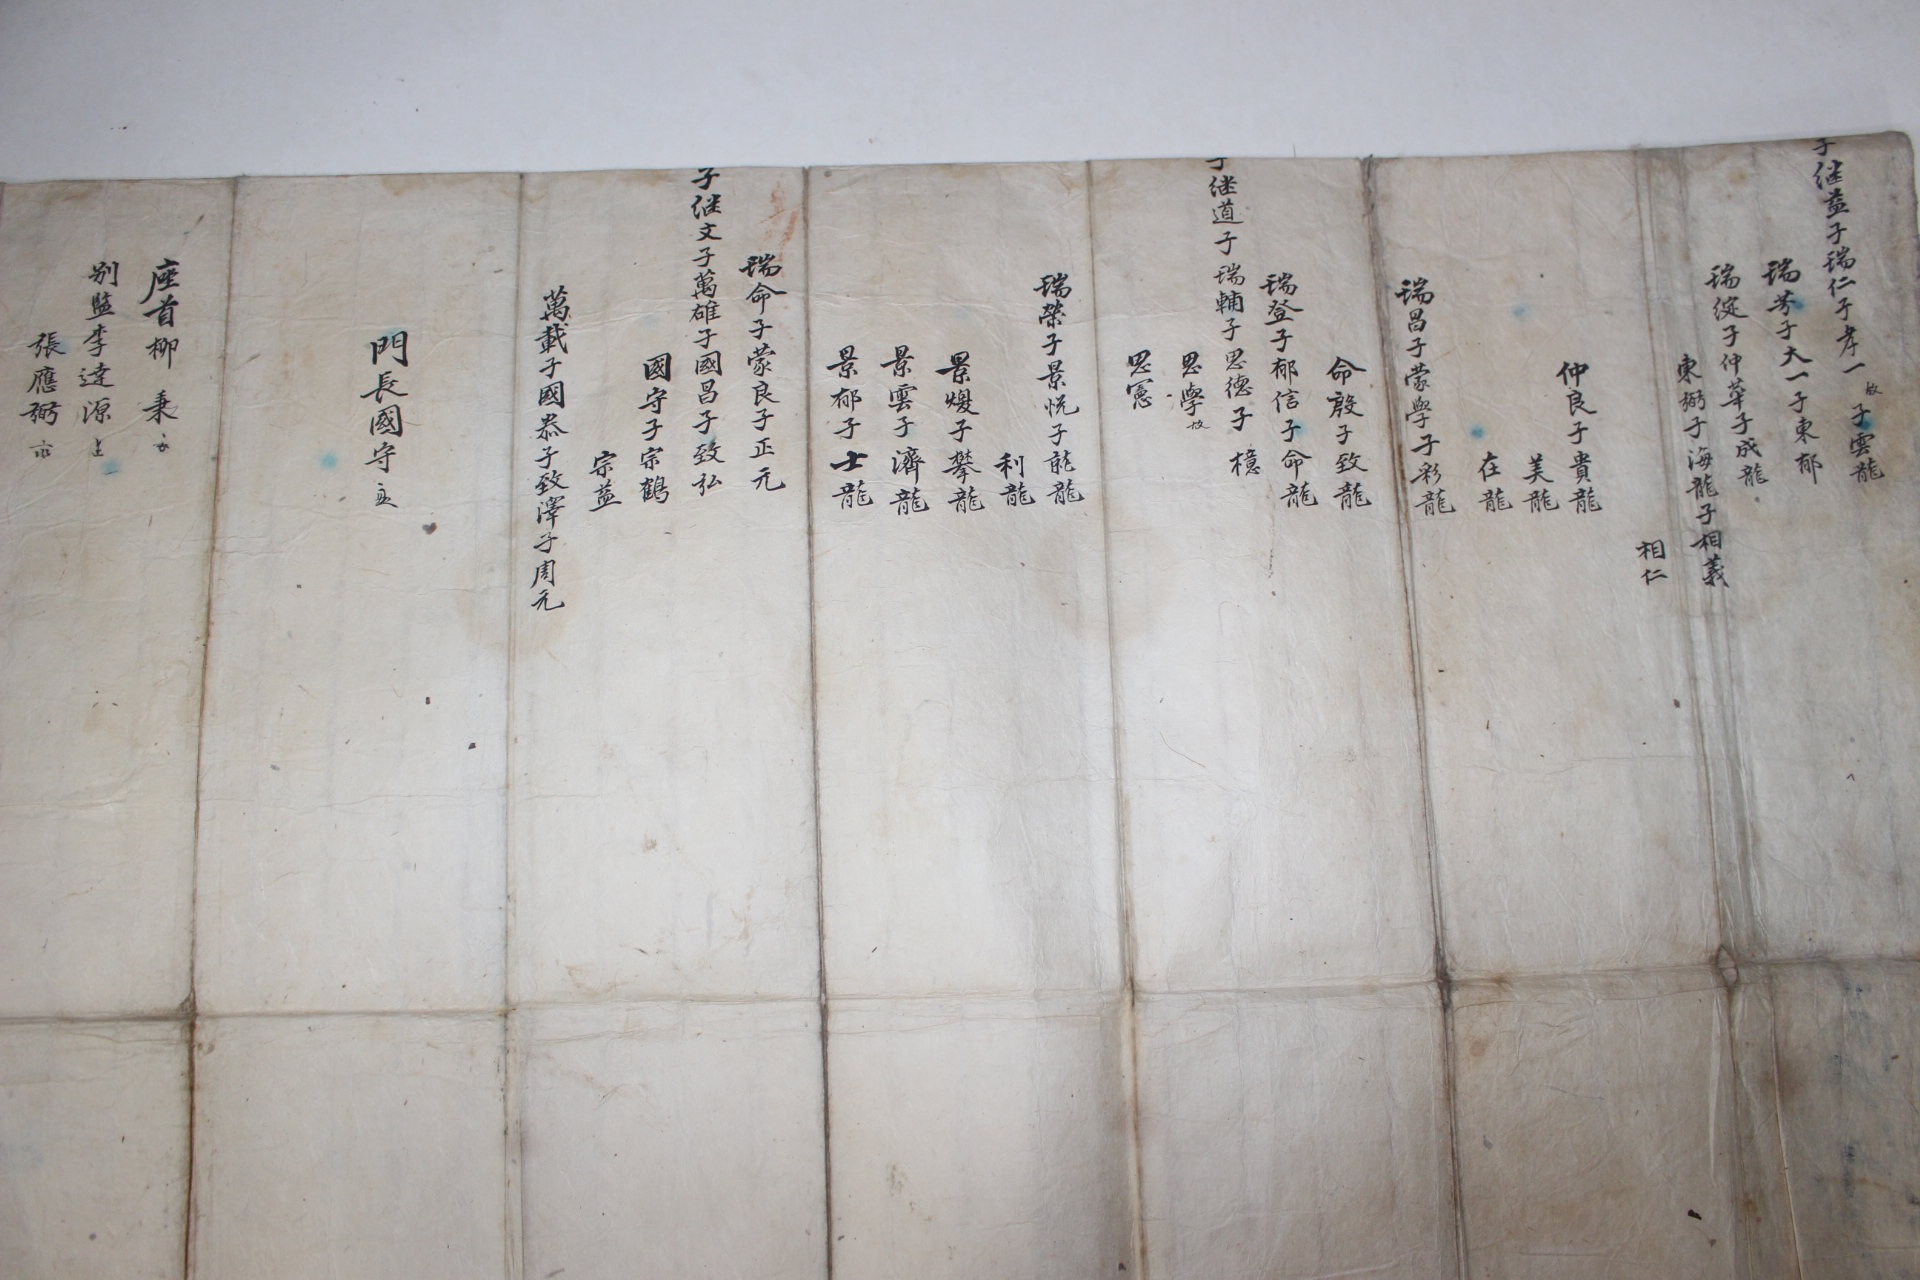 子继益子瑞仁子孝一故子雲龍
瑞芳子大一子東郁
瑞綻子仲華子成龍
東弼子海龍子相義
相仁
仲良子貴龍
美龍
在龍
瑞昌子蒙學子彩龍
命殷子致龍
瑞登子郁信子命龍
子继道子瑞輔子思德子檍
思學故
思憲
瑞榮子景悅子龍
利龍
景煖子攀龍
景雲子濟龍
景郁子士龍
瑞命子蒙良子正元
子继文子萬雄子國昌子致弘
國守子宗鶴
宗益
萬載子國恭子致澤子周元
門長國守
座首柳秉
別監李達源
張應弼